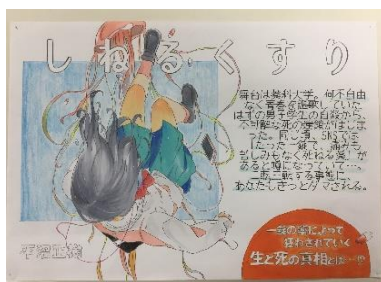 しねるくすり
舞台は薬科大学。何不自由
なく青春を謳歌していた
はずの男子学生の自殺から、
不可解な死の連鎖がはじま
った。同じ頃、SNSでは
「たった一錠で、誰もが
苦しみもなく死ねる薬」が
あると噂になっていて…。
二転三転する事態に、
あなたもきっとダマされる。
平沼正樹
一錠の薬によって
狂わされていく
生と死の真相とは…!?